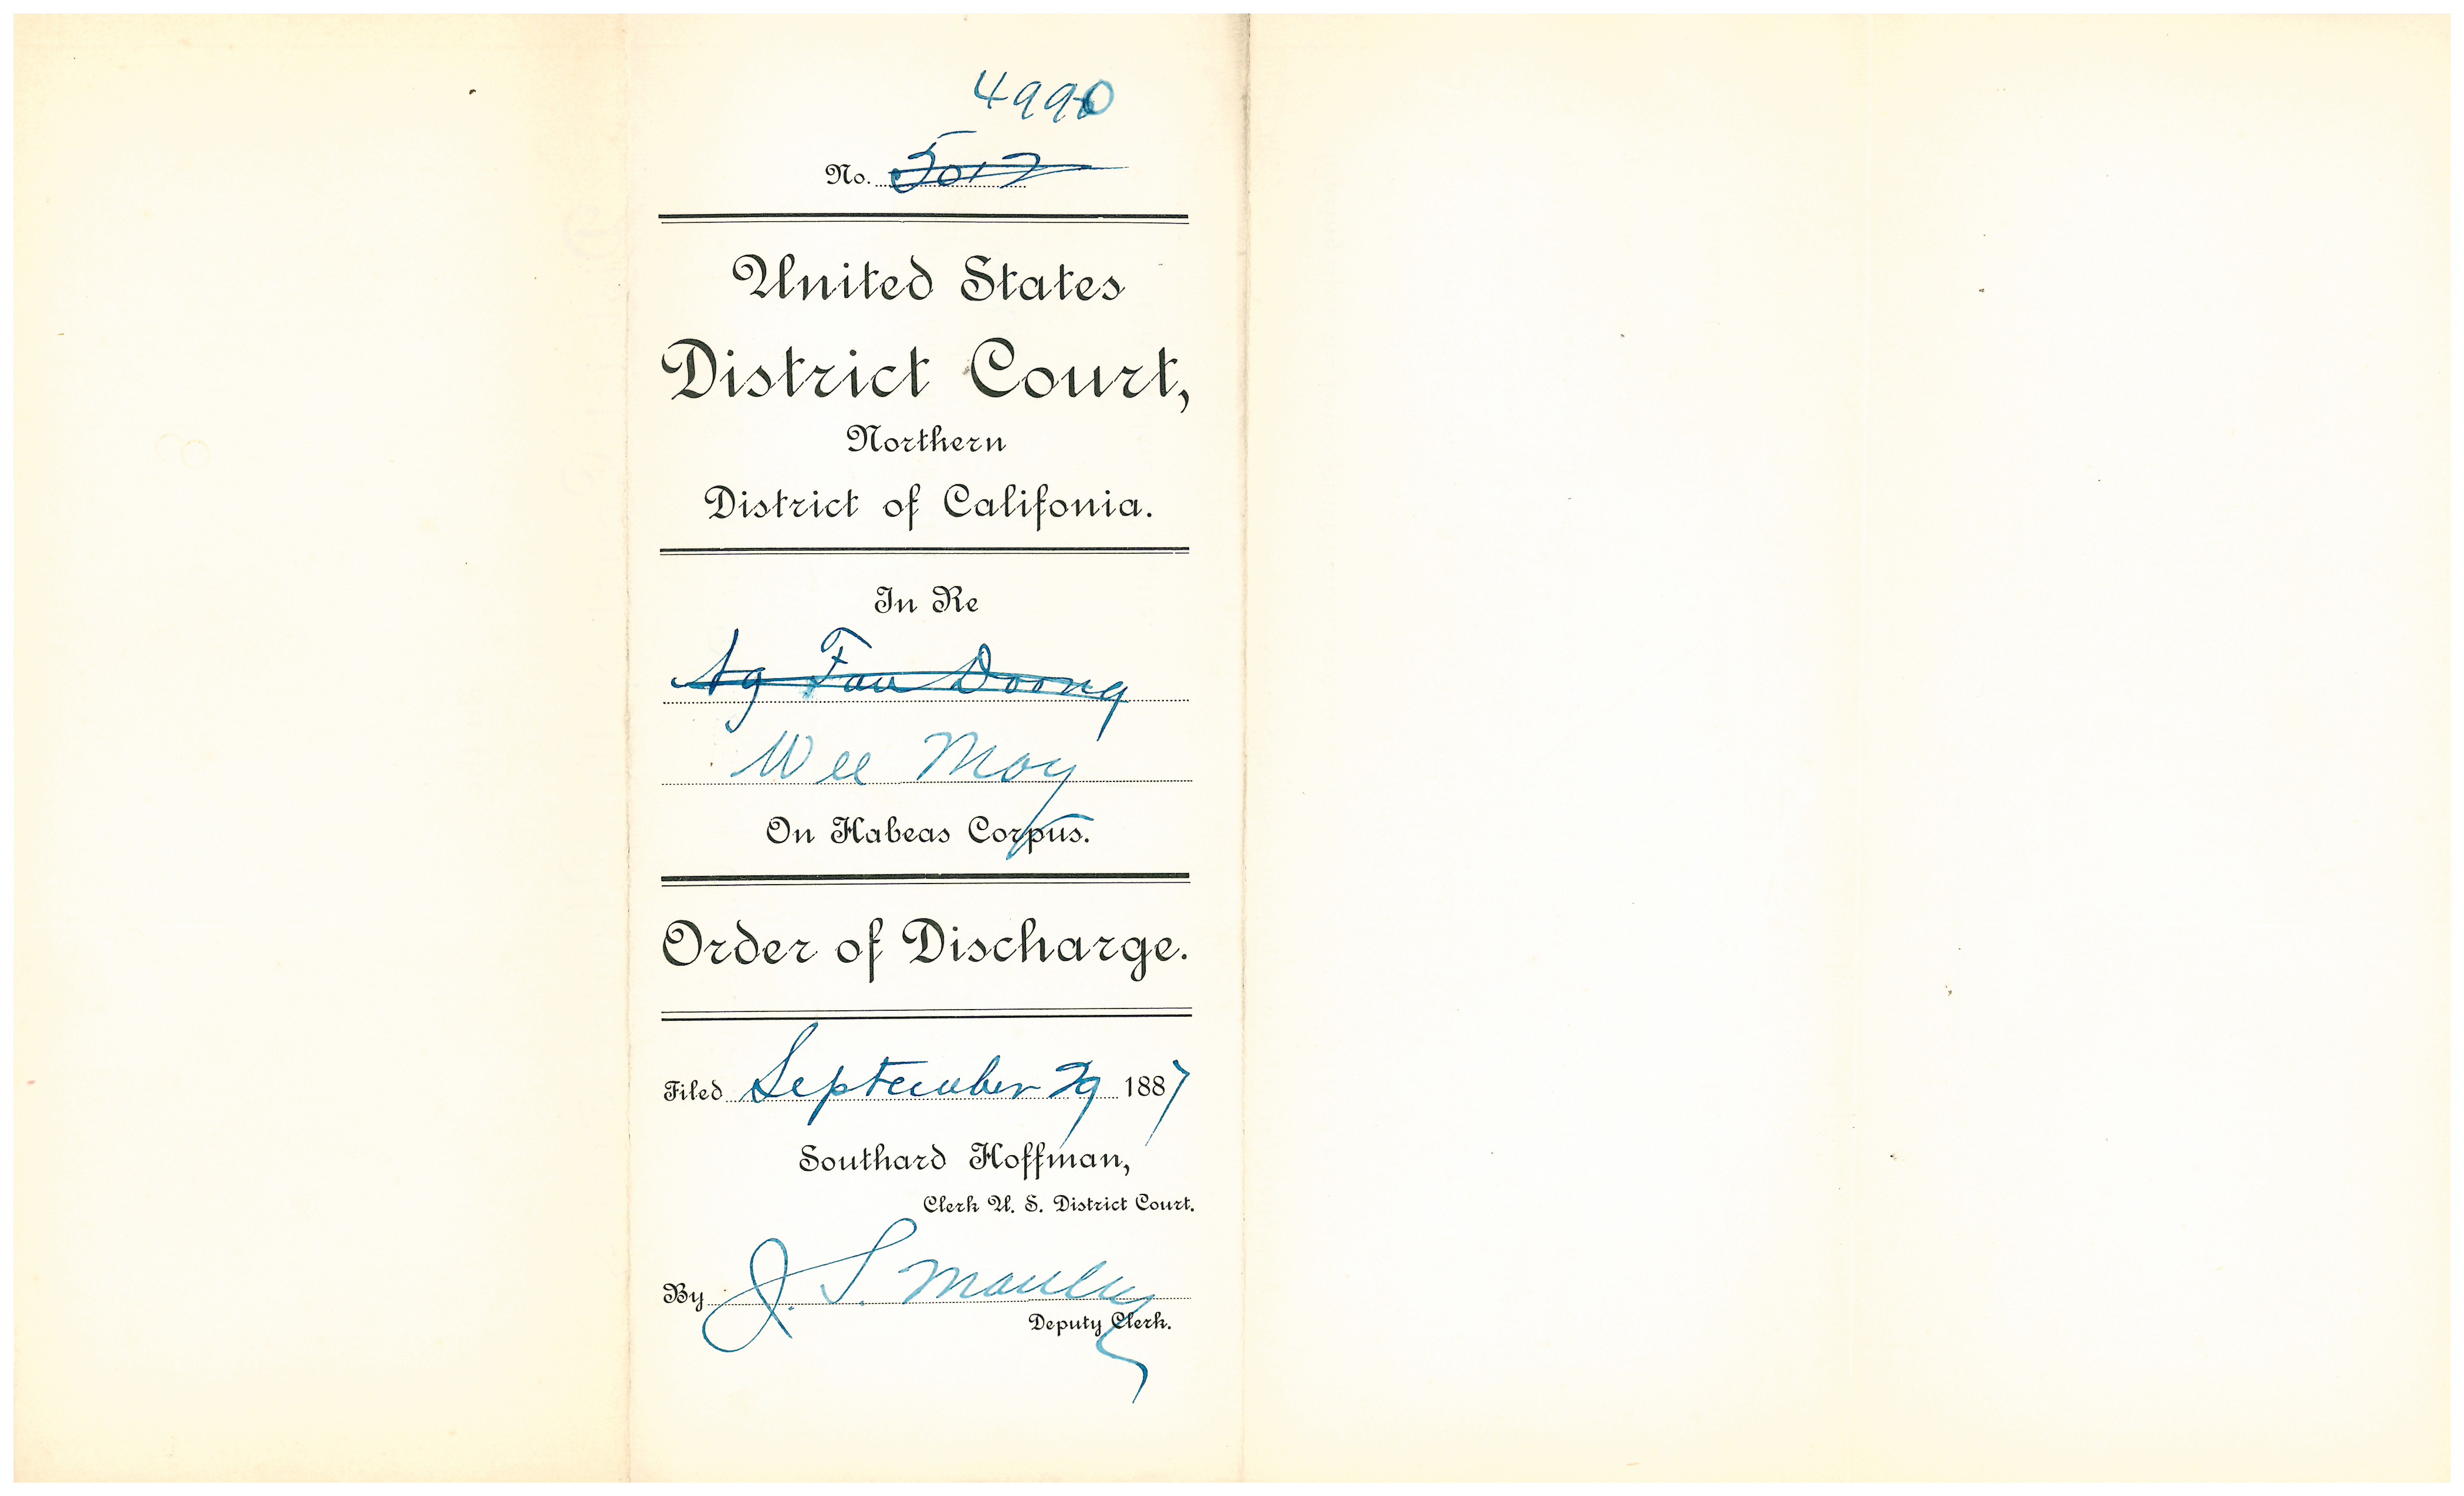 4990
No. 5017
United States
District Court,
Northern
District of Califonia.
In Re
Ag Fan Doong
Wee Moy
On Habeas Corpus.
Order of Discharge.
Filed September 29 1887
Southard Hoffman,
Clerk U. S. District Court.
By J. S. Manley
Deputy Clerk.